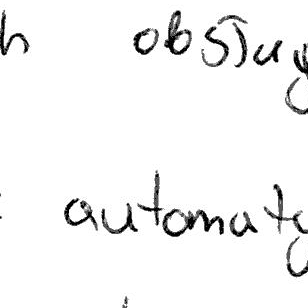 h obsług
automaty